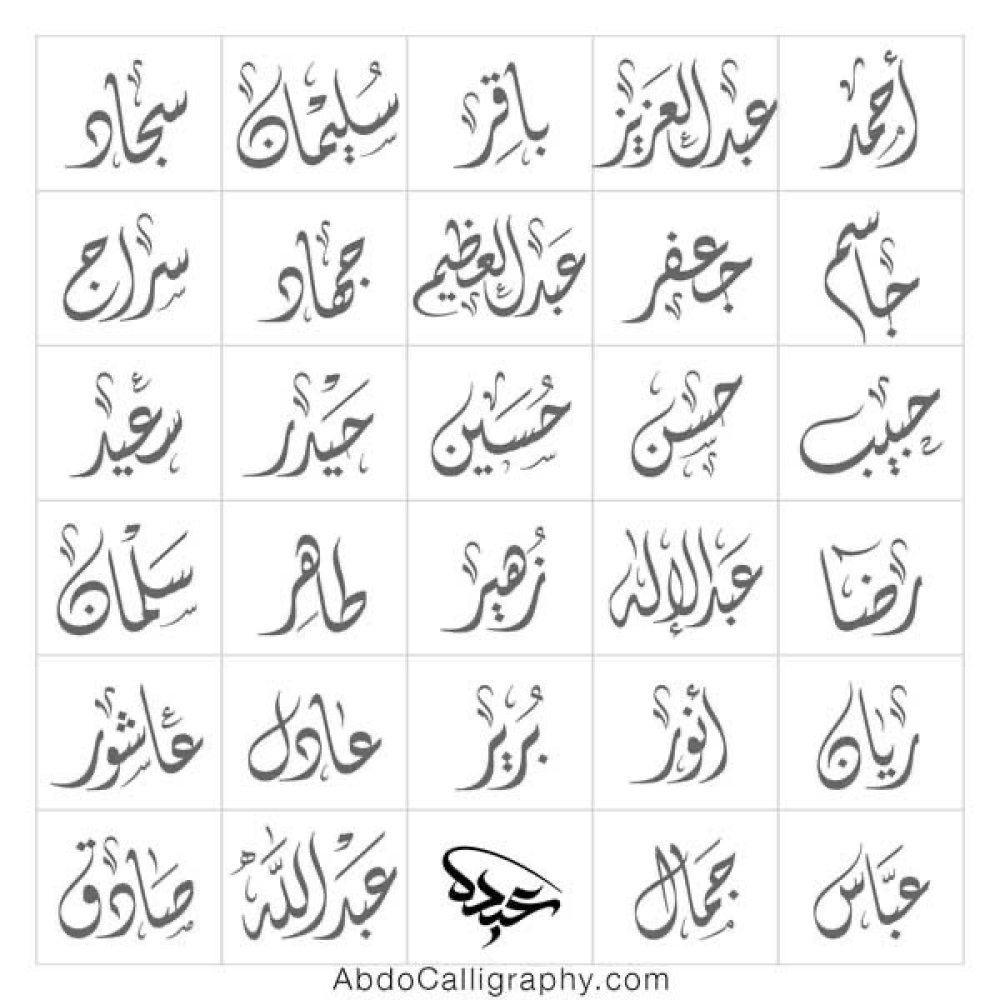 أحمد عبدالعزيز باقر سُليمان سجاد
جاسم جعفر عبدالعظيم جهاد سراج
حبيب حسن حُسَين حَيْدر سعيد
رضا عبدالإله زُهير طاهر سَلْمان
ريان أنور بُرَير عادل عاشور
عبَّاس جمال عبده عَبْدالله صادق
AbdoCalligraphy.com